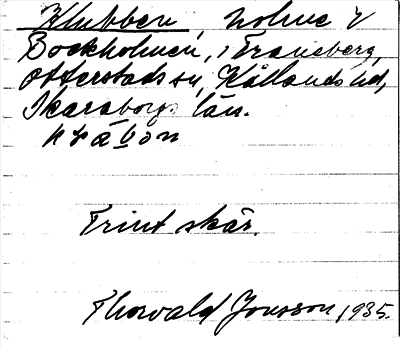 Klubben, holme V
Bockholmen, Traneberg,
Otterstads sn, Kållands hd,
Skaraborgs län.
Trint skär.
Thorvald Jonsson, 1935.